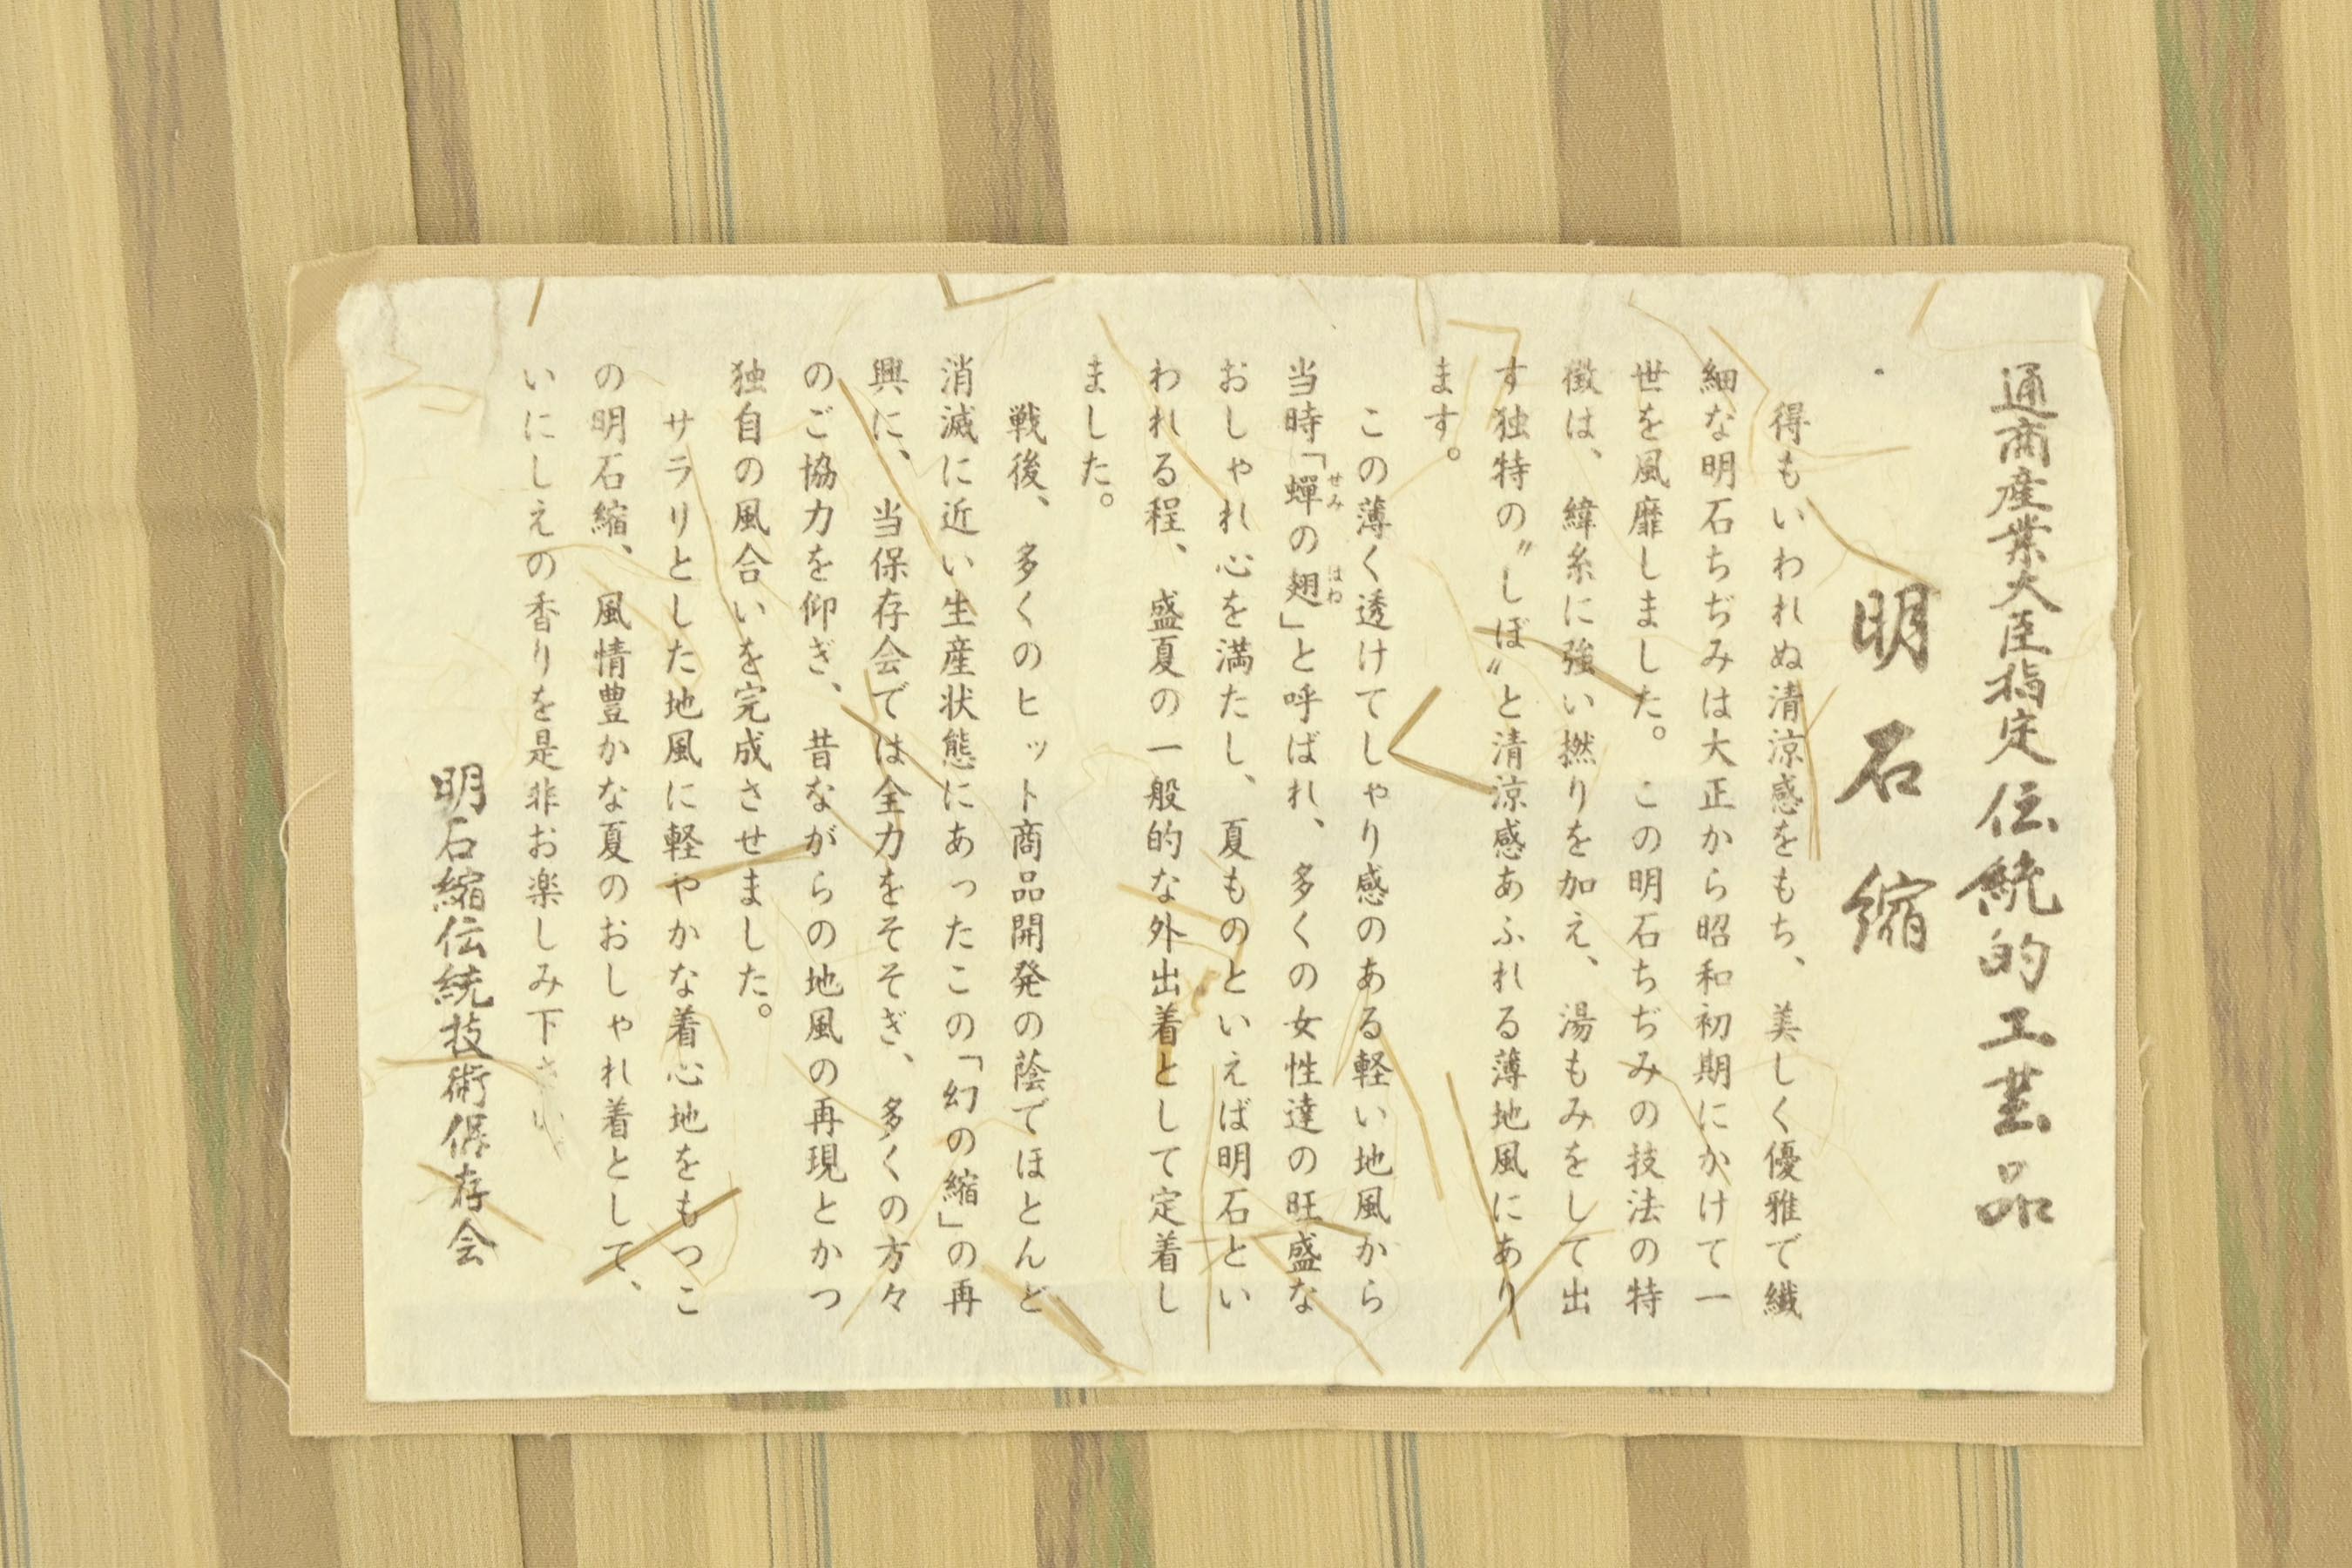 通商産業大臣指定伝統的工芸品
明石縮
得もいわれぬ清涼感をもち、美しく優雅で繊
細な明石ちぢみは大正から昭和初期にかけて一
世を風靡しました。この明石ちぢみの技法の特
徴は、緯糸に強い撚りを加え、湯もみをして出
す独特の〝しぼ〟と清涼感あふれる薄地風にあり
ます。
この薄く透けてしゃり感のある軽い地風から
当時「蟬の翅」と呼ばれ、多くの女性達の旺盛な
せみ はね
おしゃれ心を満たし、夏ものといえば明石とい
われる程、盛夏の一般的な外出着として定着し
ました。
戦後、多くのヒット商品開発の蔭でほとんど
消滅に近い生産状態にあったこの「幻の縮」の再
興に、当保存会では全力をそそぎ、多くの方々
のご協力を仰ぎ、昔ながらの地風の再現とかつ
独自の風合いを完成させました。
サラリとした地風に軽やかな着心地をもつこ
の明石縮、風情豊かな夏のおしゃれ着として、
いにしえの香りを是非お楽しみ下さい。
明石縮伝統技術保存会